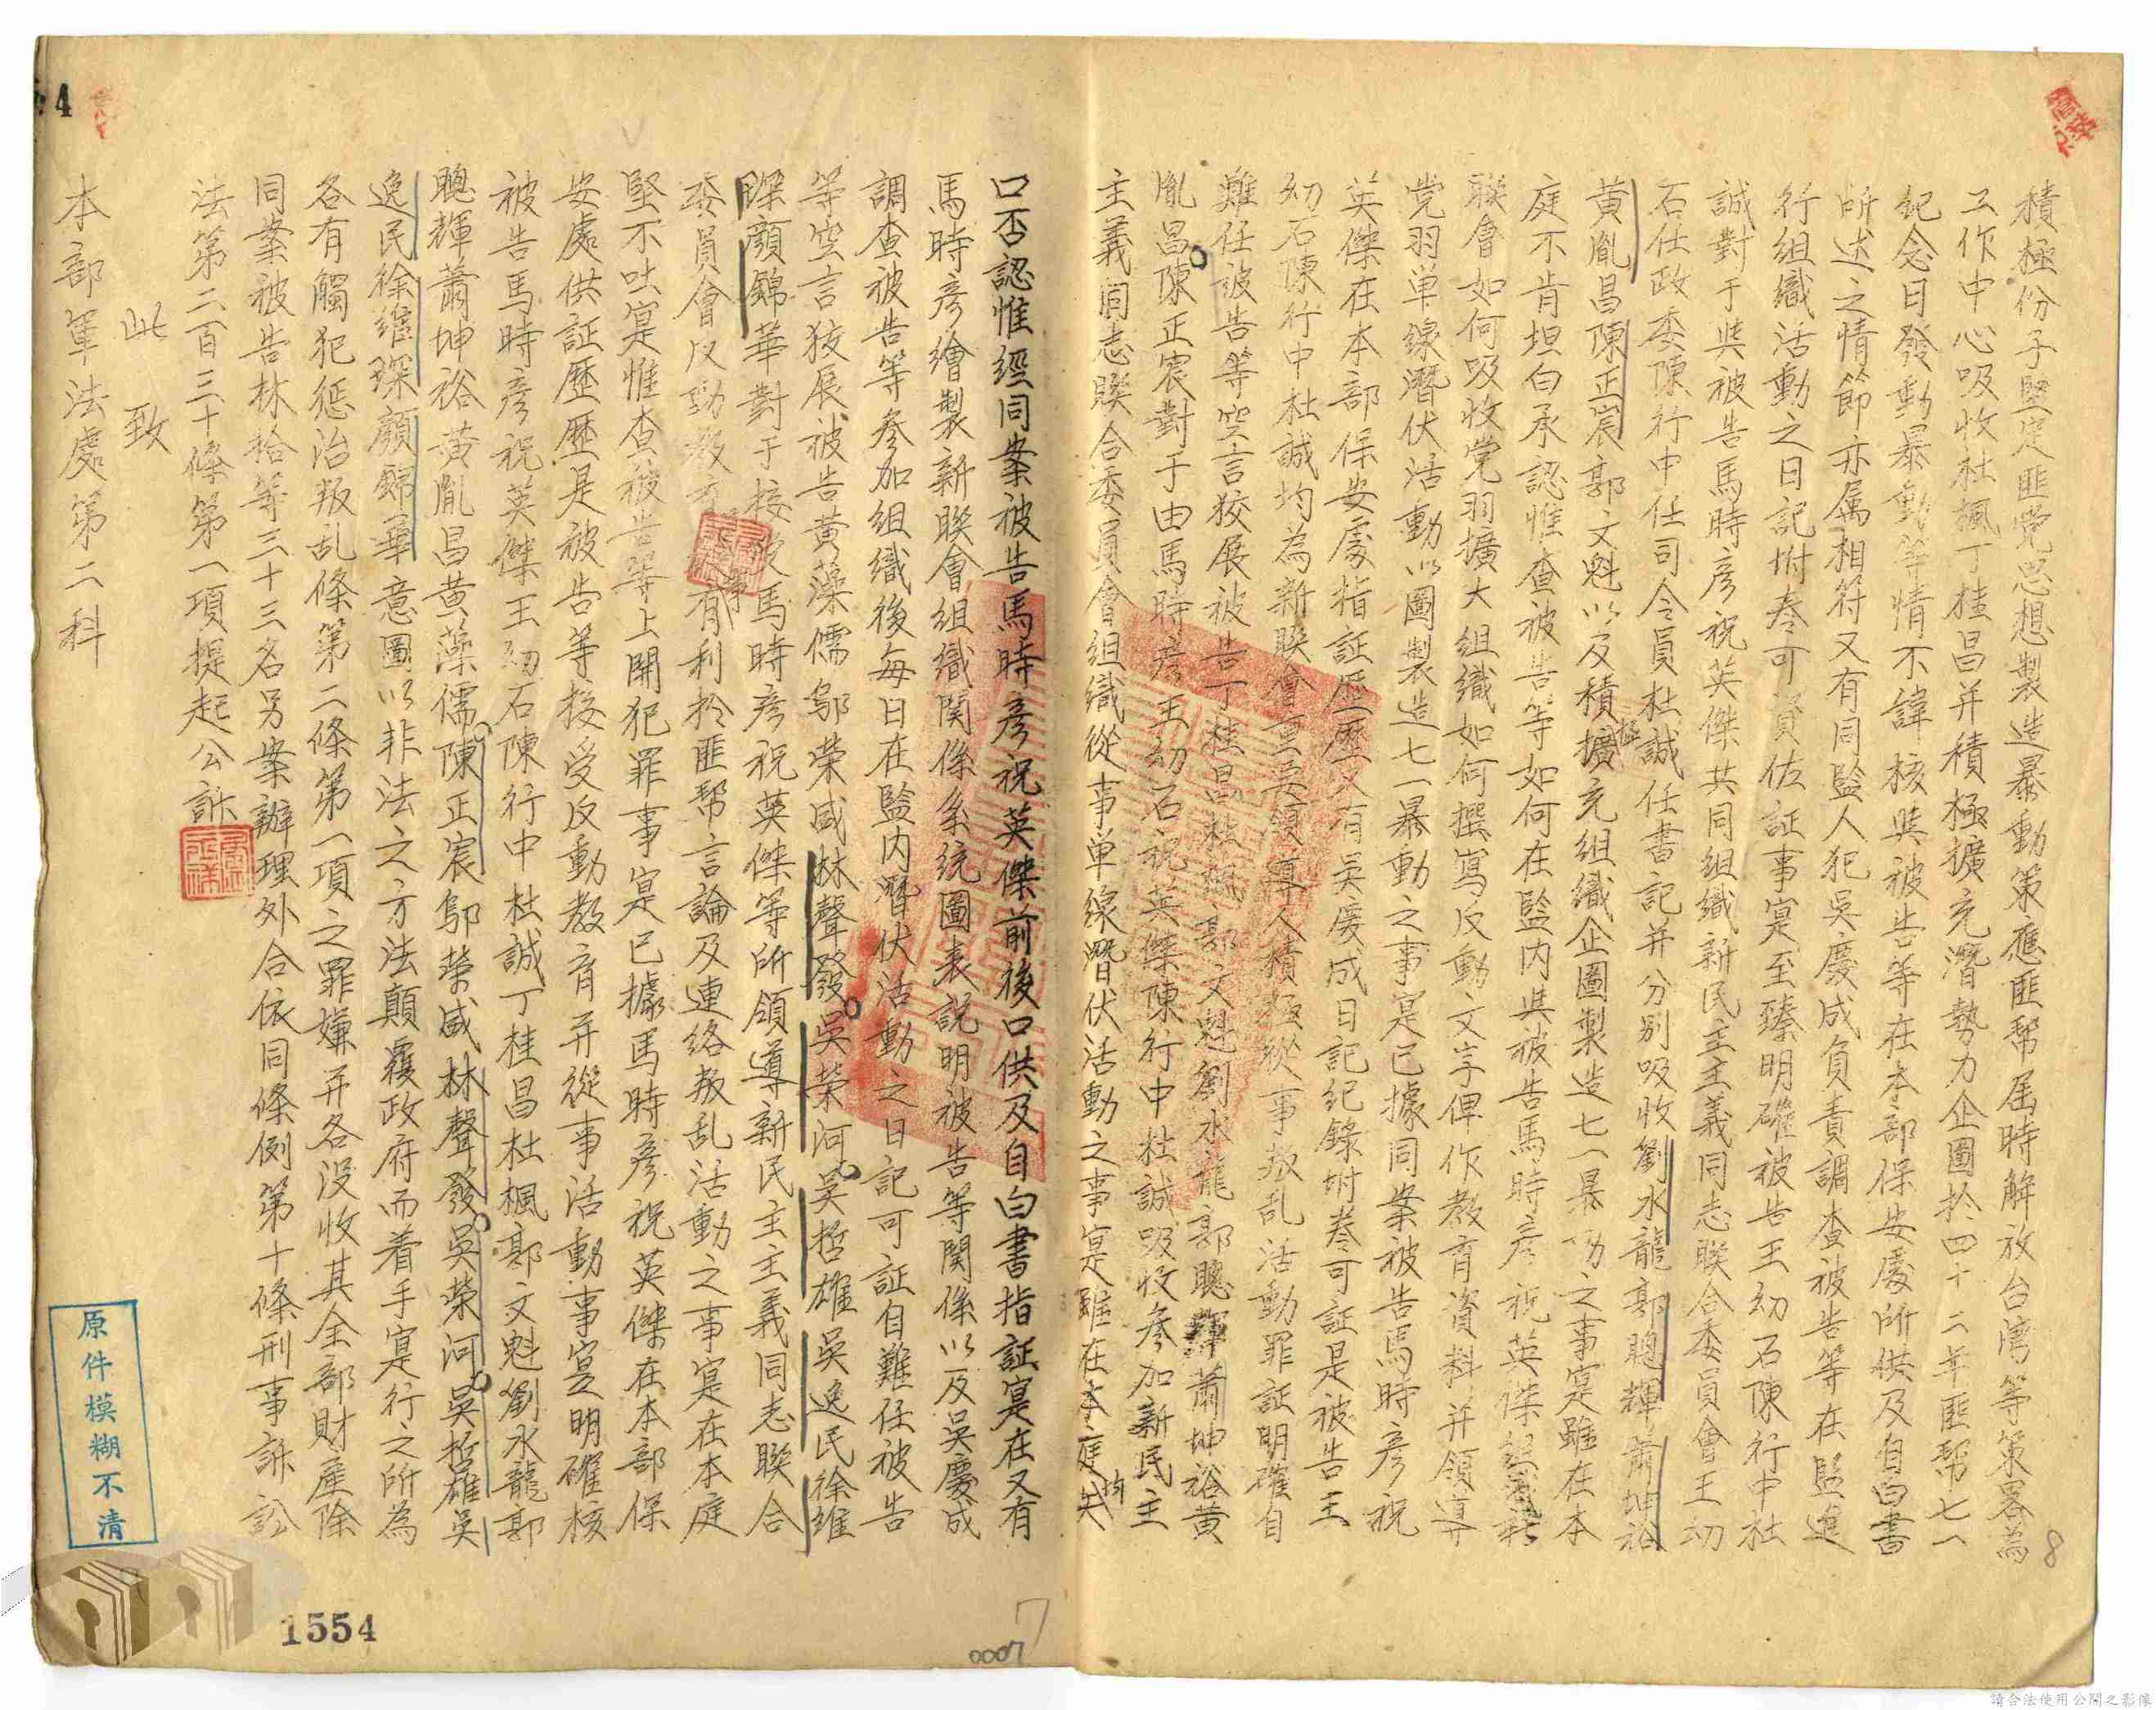 積極份子堅定匪党思想製造暴動策應匪幫屆時解放台湾等策畧為
工作中心吸收杜楓丁桂昌并積極擴充潛勢力企圖於四十二年匪幫七一
紀念日發動暴動等情不諱核與被告等在本部保安處所供及自白書
所述之情節亦屬相符又有同監人犯吳慶成負責調查被告等在監進
行組織活動之日記附卷可資佐証事寔至臻明確被告王幼石陳行中杜
誠對于與被告馬時彥祝英傑共同組織新民主主義同志聯合委員會王幼
石任政委陳行中任司令員杜誠任書記并分別吸收劉水龍郭聰輝蕭坤裕
黃胤昌陳正宸郭文魁以及積極擴充組織企圖製造七一暴動之事寔雖在本
庭不肯坦白承認惟查被告等如何在監內與被告馬時彥祝英傑組織新
聯會如何吸收党羽擴大組織如何撰寫反動文字俾作教育資料并領導
党羽单線潛伏活動以圖製造七一暴動之事寔已據同案被告馬時彥祝
英傑在本部保安處指証歷歷又有吳慶成日記紀錄附卷可証是被告王
幼石陳行中杜誠均為新聯會重要領導人積極從事叛乱活動罪証明確自
難任被告等空言狡展被告丁桂昌杜楓郭文魁劉水龍郭聰輝蕭坤裕黃
胤昌陳正宸對于由馬時彥王幼石祝英傑陳行中杜誠吸收參加新民主
主義同志聯合委員會組織從事单線潛伏活動之事寔雖在本庭均失
口否認惟經同案被告馬時彥祝英傑前後口供及自白書指証寔在又有
馬時彥繪製新聯會組織関係系統圖表説明被告等関係以及吳慶成
調查被告等參加組織後每日在監內潛伏活動之日記可証自難任被告
等空言狡展被告黃藻儒鄔榮咸林聲發吳榮河吳哲雄吳逸民徐維
琛顏錦華對于接受馬時彥祝英傑等所領導新民主主義同志聯合
委員會反動教育有利於匪幫言論及連絡叛乱活動之事寔在本庭
堅不吐寔惟查被告等上開犯罪事寔已據馬時彥祝英傑在本部保
安處供証歷歷是被告等接受反動教育并從事活動事寔明確核
被告馬時彥祝英傑王幼石陳行中杜誠丁桂昌杜楓郭文魁劉水龍郭
聰輝蕭坤裕黃胤昌黃藻儒陳正宸鄔榮咸林聲發吳榮河吳哲雄吳
逸民徐維琛顏錦華意圖以非法之方法顛覆政府而着手寔行之所為
各有觸犯惩治叛乱條第二條第一項之罪嫌并各沒收其全部財產除
同案被告林拾等三十三名另案辦理外合依同條例第十條刑事訴訟
法第二百三十條第一項提起公訴
此致
本部軍法處第二科
原件模糊不清
4
8
7
0007
1554
請合法使用公開之影像